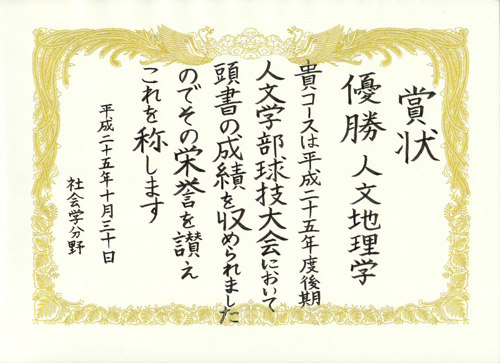 賞状
優勝 人文地理学
貴コースは平成二十五年度後期
人文学部球技大会において
頭書の成績を収められました
のでその栄誉を讃え
これを称します
平成二十五年十月三十日
社会学分野